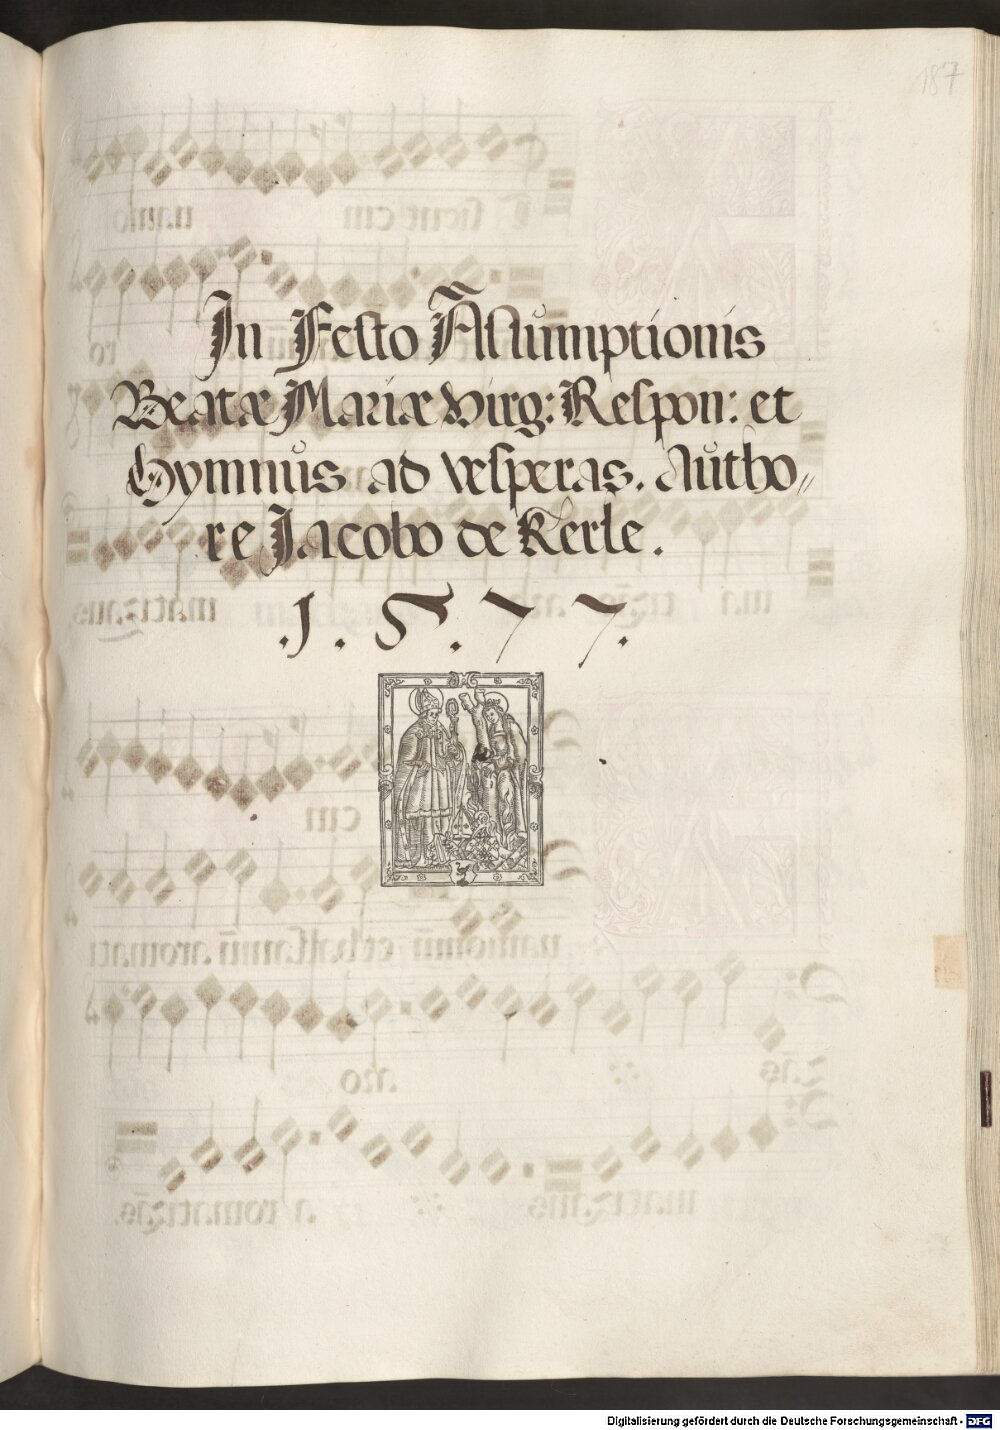 187
In Festo Assumptionis
Beatæ Mariæ Virg: Respon: et
Hymnus ad vesperas. Autho〃
re Jacobo de Kerle.
.1.5.77.
Digitalisierung gefördert durch die Deutsche Forschungsgemeinschaft - DFG